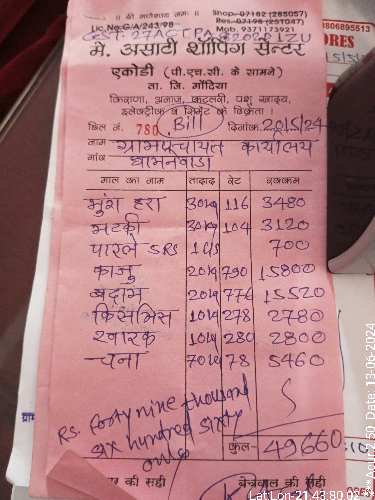 ॥ श्री गणेशाय नमः ॥ Shop-07182 (265057)
Lic.No.G/A/243/98 Res.07198 (251047)
Mob. 9371171921
GST. 27ACTPA
मे. असाटी शॉपिंग सेन्टर
एकोडी (पी.एच.सी. के सामने)
ता. जि. गोंदिया
किराणा, अनाज, कटलरी, पशु खाद्य,
इलेक्ट्रीक व सिमेंट के विक्रेता ।
बिल नं. 780 Bill दिनांक 20/5/24
नाम ग्रामपंचायत कार्यालय
गांव धामनेवाडा
माल का नाम तादाद रेट रक्कम
मुंग हरा 30kg 116 3480
मटकी 30kg 104 3120
पारले SRS 1C/S 700
काजु 20kg 790 15800
बदाम 20kg 776 15520
किसमिस 10kg 278 2780
खारक 10kg 280 2800
चना 70kg 78 5460
Rs. forty nine thousand
six hundred sixty
only
कुल- 49660
की सही बेचवाल की सही
06895513
ORES
ग्राम
Lat Lon-21.43.80.02
Date 13-06-2024